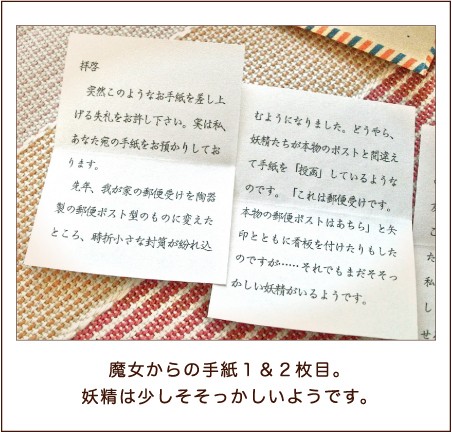 拝啓
突然このようなお手紙を差し上
げる失礼をお許し下さい。実は私、
あなた宛の手紙をお預かりしてお
ります。
先年、我が家の郵便受けを陶器
製の郵便ポスト型のものに変えた
ところ、時折小さな封筒が紛れ込
むようになりました。どうやら、
妖精たちが本物のポストと間違え
て手紙を「投函」しているような
のです。「これは郵便受けです。
本物の郵便ポストはあちら」と矢
印とともに看板を付けたりもした
のですが……それでもまだそそっ
かしい妖精がいるようです。
魔女からの手紙１＆２枚目。
妖精は少しそそっかしいようです。